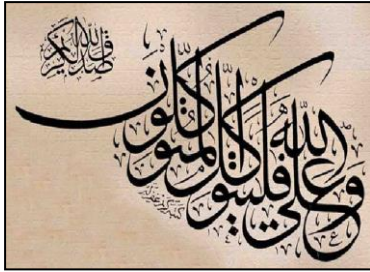 صدق الله الكريم
وعلى الله فليتوكل المتوكلون